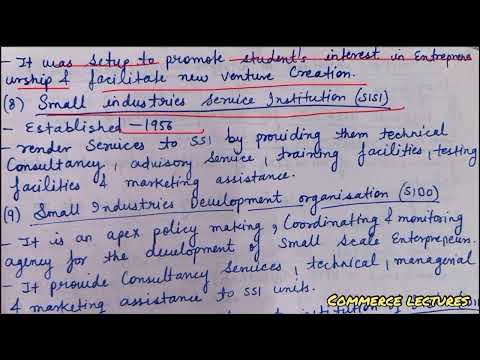 - It was setup to promote student's interest in Entrepren
urship & facilitate new venture Creation.
(8) Small industries Service Institution (SISI)
- Established - 1956
- render Services to SSI by providing them technical
Consultancy, advisory service, training facilities, testing
facilities & marketing assistance.
(9) Small Industries Development organisation (SIDO)
- It is an apex policy making, Coordinating & monitoring
agency for the development of Small Scale Enterpreneurs.
- It provide Consultancy Services, technical, managerial
& marketing assistance to SSI units.
COMMERCE LECTURES